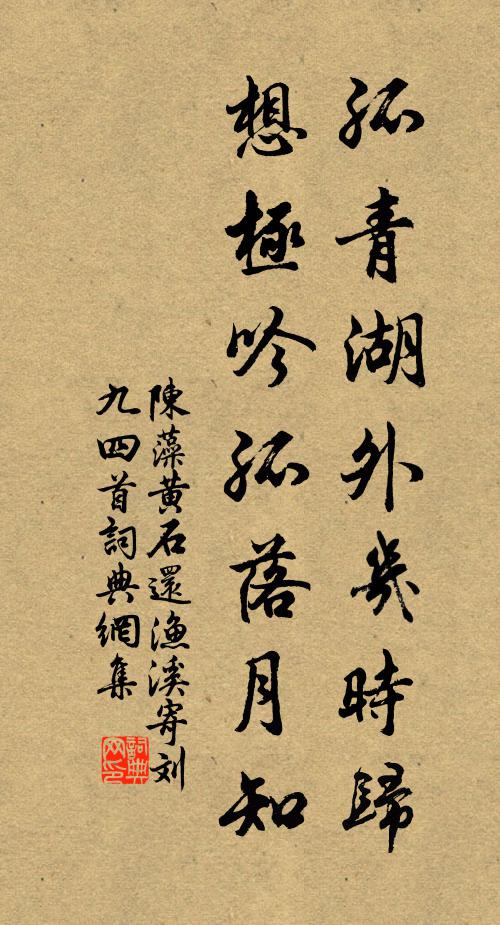 孤青湖外幾時歸
想極吟孤落月知
陳藻黃石還漁溪寄刘
九四首詞典網集
詞典
网印